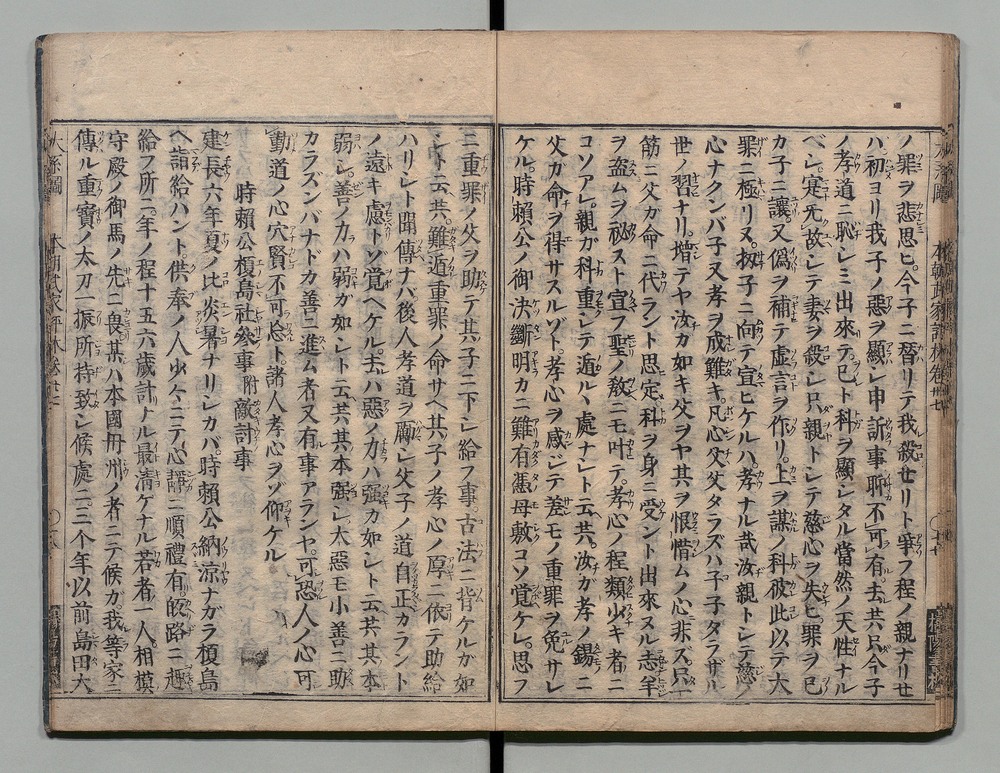 ノ罪ヲ悲思ヒ。今子ニ替リテ我殺せリト爭フ程ノ親ナリせ
ハ初ヨリ我子ノ惡ヲ顯シ申訴事聊不可有。去共只今子
ノ孝道ニ恥レミ出來テ。已ト科ヲ顯レタル當然ノ天性ナル
ベシ。寃先故シテ妻ヲ殺シ只親トシテ慈心ヲ失ヒ。罪ヲ已
カ子ニ讓。又偽ヲ補テ虚言ヲ作リ。上ヲ謀ノ科彼此以テ大
罪ニ極リヌ。扨子ニ向テ宣ヒケルハ孝ナル哉汝親トシテ慈
心ナクンバ子又孝ヲ成難キ。凡心父父タラズハ子子タラザル
世ノ習ナリ。増テヤ汝カ如キ父ヲヤ其ヲ恨惰ムノ心非ズ。只一
筋ニ父ガ命ニ代ラント思定科ヲ身ニ受ント出來ヌル志羊
ヲ盗ムヲ秘スト宣フ聖ノ敎ニモ叶テ。孝心ノ程類少キ者ニ
コソアレ。親ガ科重シテ遁ルヽ處ナレト云共。汝ガ孝ノ錫ニ
父カ命ヲ得サスルゾト。孝心ヲ感ジテ差モノ重罪ヲ免サレ
ケル。時賴公ノ御決斷明カニ難有憑母敷コソ覚ケレ。思フ
ニ重罪ノ父ヲ助テ其子ニ下シ給フ事。古法ニ背ケルガ如
シト云共。難遁重罪ノ命サヘ其子ノ孝心ノ厚ニ依テ助給
ハリシト聞傳ナバ後人孝道ヲ勵シ父子ノ道自正カラント
ノ遠キ慮トソ覚ヘケル。去ハ惡ノ力ハ强カ如シト云共其本
弱シ。善ノ力ハ弱ガ如シト云共其本强シ大惡モ小善ニ助
カラズンバナドカ善ニ進ム者又有事アランヤ。可恐人ノ心可
勤道ノ心穴賢不可忩ト。諸人孝心ヲゾ仰ケル
時賴公榎島社參事附敵討事
建長六年夏ノ比炎暑ナリシカバ。時賴公納涼ナガラ榎島
ヘ詣給ハント。供奉ノ人少々ニテ心靜ニ順禮有。皈路ニ趣
給フ所ニ。年ノ程十五六歳計ナル最淸ケナル若者一人。相模
守殿ノ御馬ノ先ニ畏某ハ本國丹州ノ者ニテ候カ。我等家ニ
傳ル重寶ノ太刀一振所持致シ候處ニ。三个年以前島田大